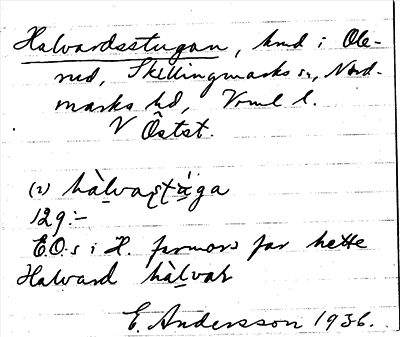 Halvardsstugan, hmd i Ole-
rud, Skillingmarks sn, Nord-
marks hd, Vrml l.
V Östst.
(2) hàlvaʂt́ǎga
129:-
E.O.s i H. farmors far hette
Halvard hàlvaʈ
E. Andersson 1936.